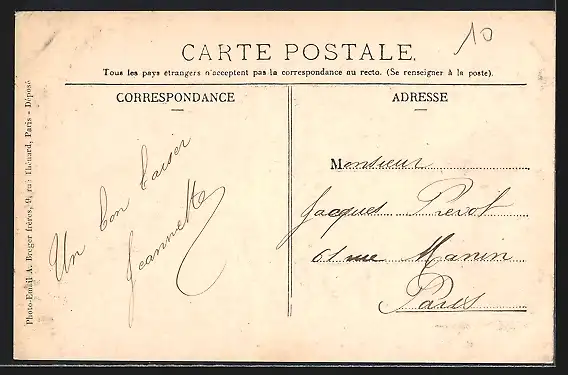 10
CARTE POSTALE.
Tous les pays étrangers n'acceptent pas la correspondance au recto. (Se renseigner à la poste).
CORRESPONDANCE
Un bon baiser
Jeannette
ADRESSE
Monsieur
Jacques Prevot
61 rue Manin
Paris
Photo-Email A. Breger frères, 9, rue Thénard, Paris - Déposé